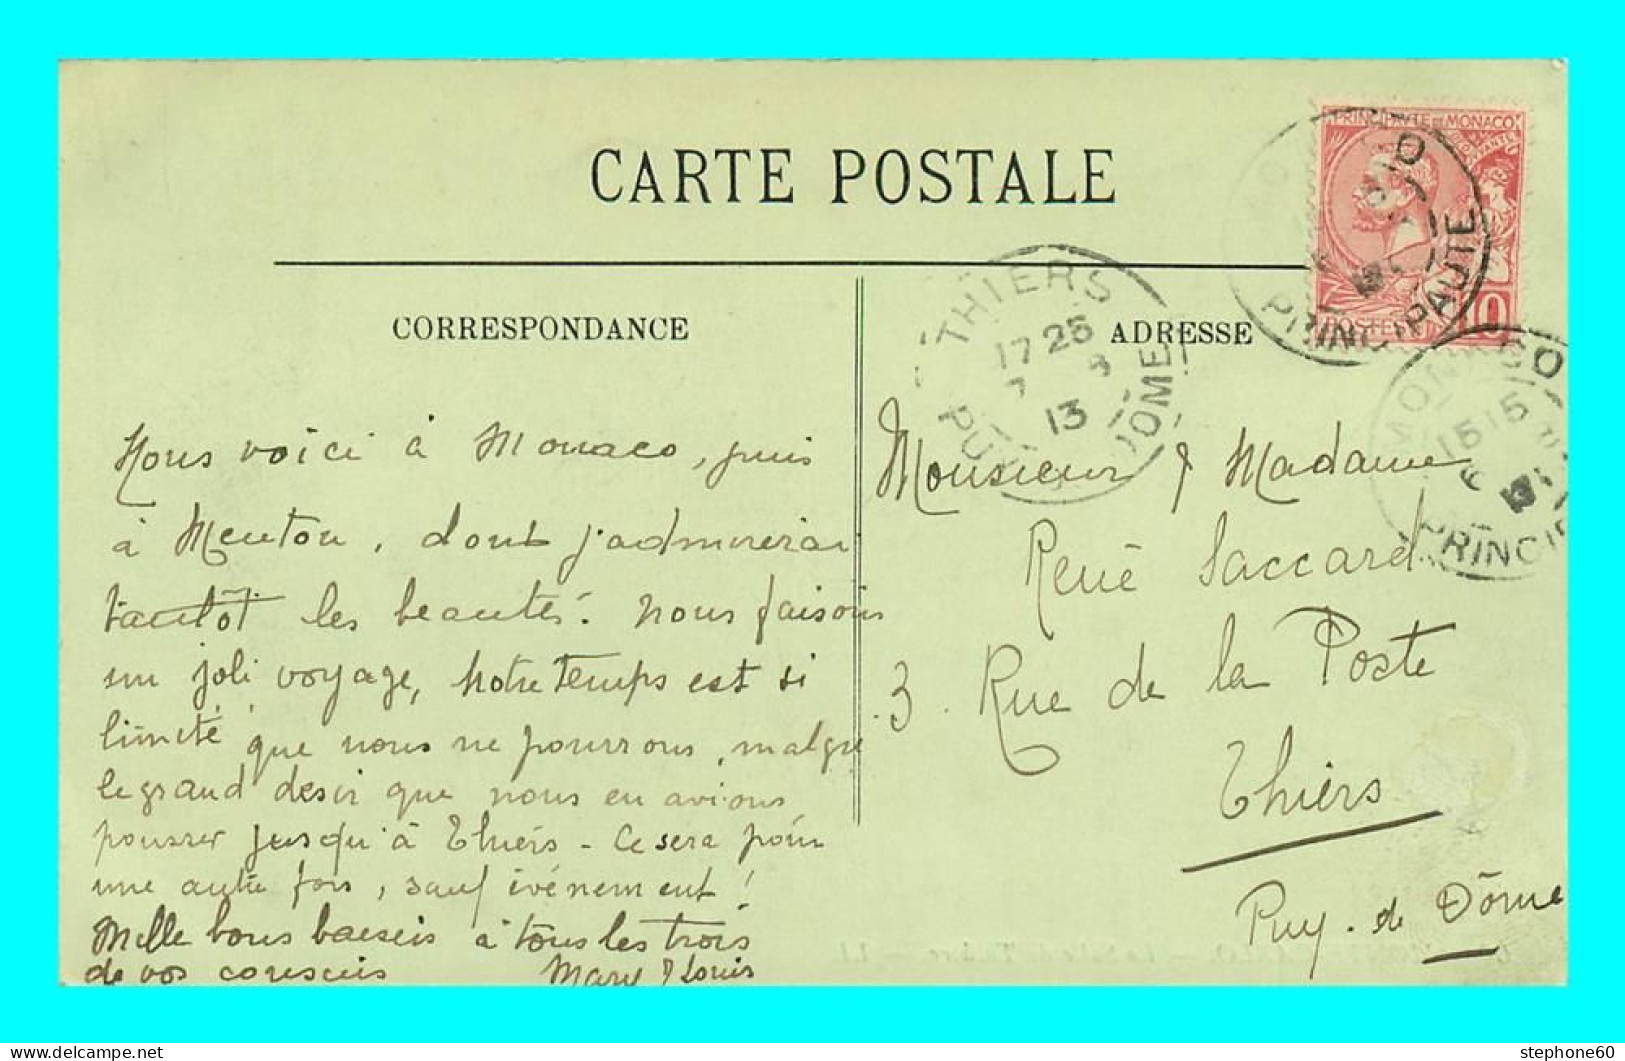 CARTE POSTALE
CORRESPONDANCE
ADRESSE
PRINCIPAUTE DE MONACO
POSTES
10
PRINCIPAUTE
THIERS
17 25
7 8
13
PUY DOME
MONACO
15 15
6
PRINCIP
Nous voici à Monaco, puis
à Menton, dont j'admirerai
tantôt les beautés. Nous faisons
un joli voyage, notre temps est si
limité que nous ne pourrons, malgré
le grand desir que nous en avions
pousser jusqu'à Thiers - Ce sera pour
une autre fois, sauf évènement!
Mille bons baisers à tous les trois
de vos cousins Mary & Louis
Monsieur & Madame
René Saccard
3. Rue de la Poste
Thiers
Puy-de Dôme
stephone60